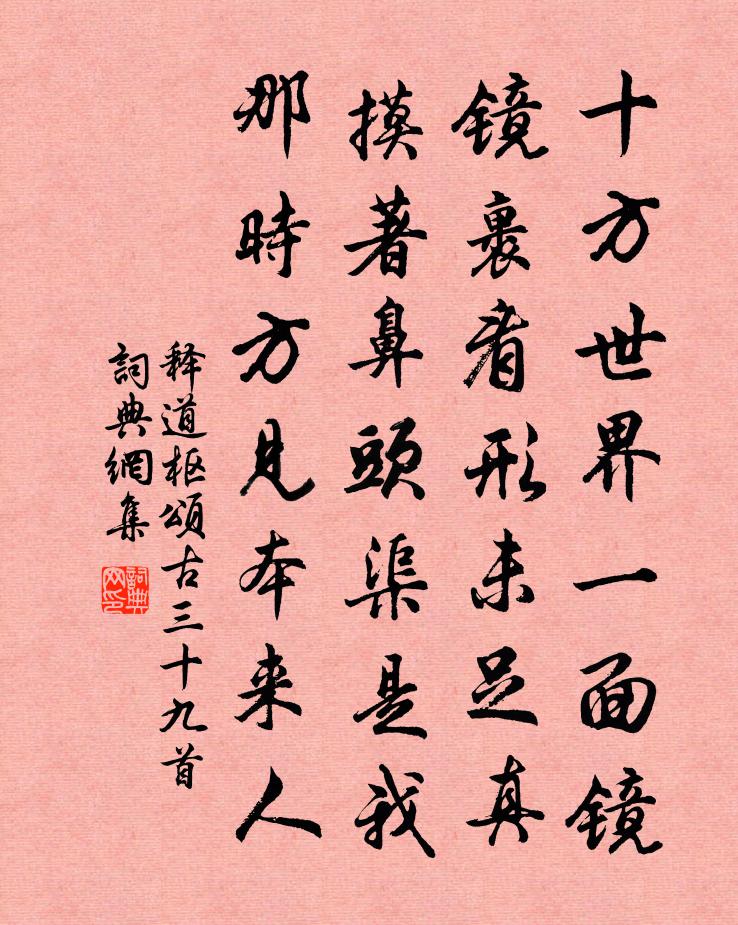 十方世界一面镜
镜裹看形未足真
摸著鼻頭渠是我
那時方見本来人
释道枢頌古三十九首
詞典網集
詞典网印